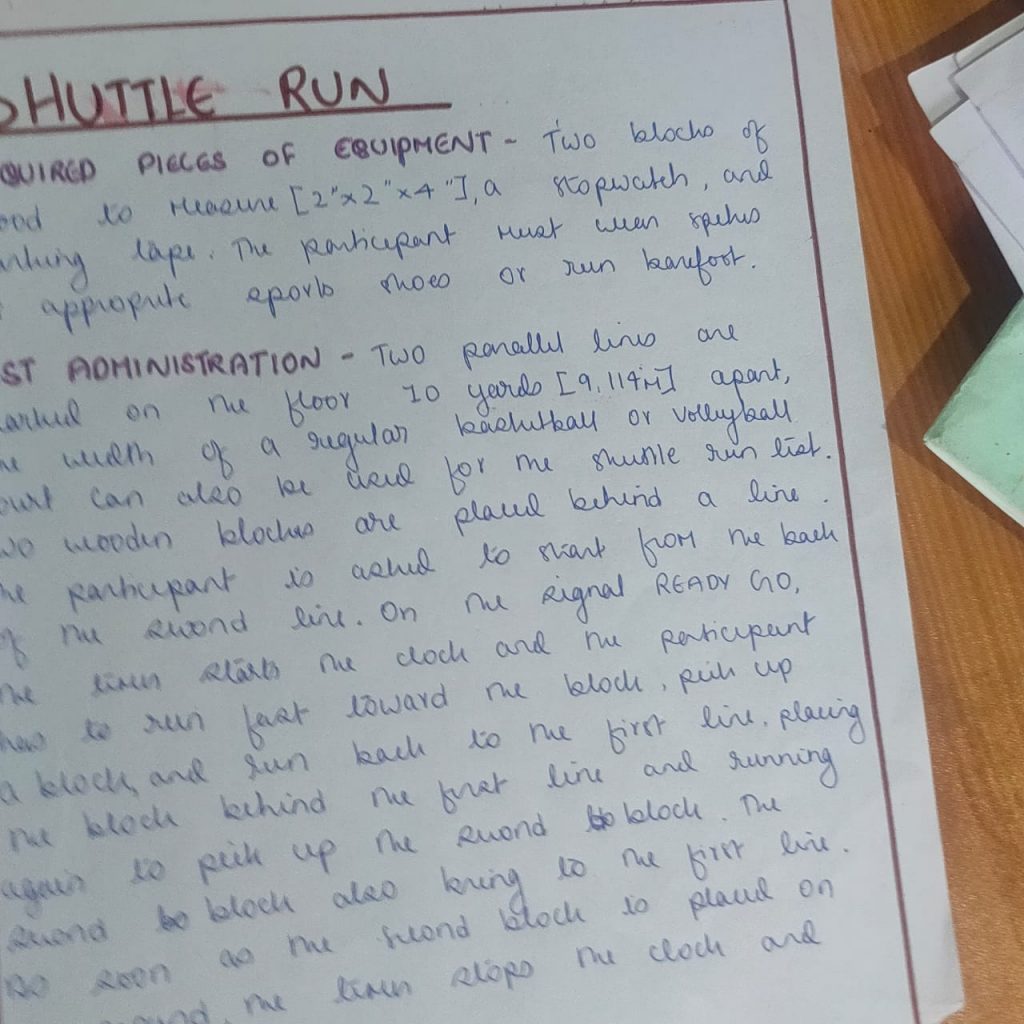 SHUTTLE RUN
QUIRED PIECES OF EQUIPMENT - Two blocks of
ood to measure [2"x2"x4"], a stopwatch, and
arking tape. The participant must wear spikes
appropriate sports shoes or run barefoot.
ST ADMINISTRATION - Two parallel lines are
arked on the floor 10 yards [9.114m] apart,
he width of a regular basketball or volleyball
ourt can also be used for the shuttle run test.
wo wooden blocks are placed behind a line.
he participant is asked to start from the back
of the second line. On the signal READY GO,
the timer starts the clock and the participant
has to run fast toward the block, pick up
a block, and run back to the first line, placing
the block behind the first line and running
again to pick up the second block. The
second block also bring to the first line.
As soon as the second block is placed on
ground, the timer stops the clock and